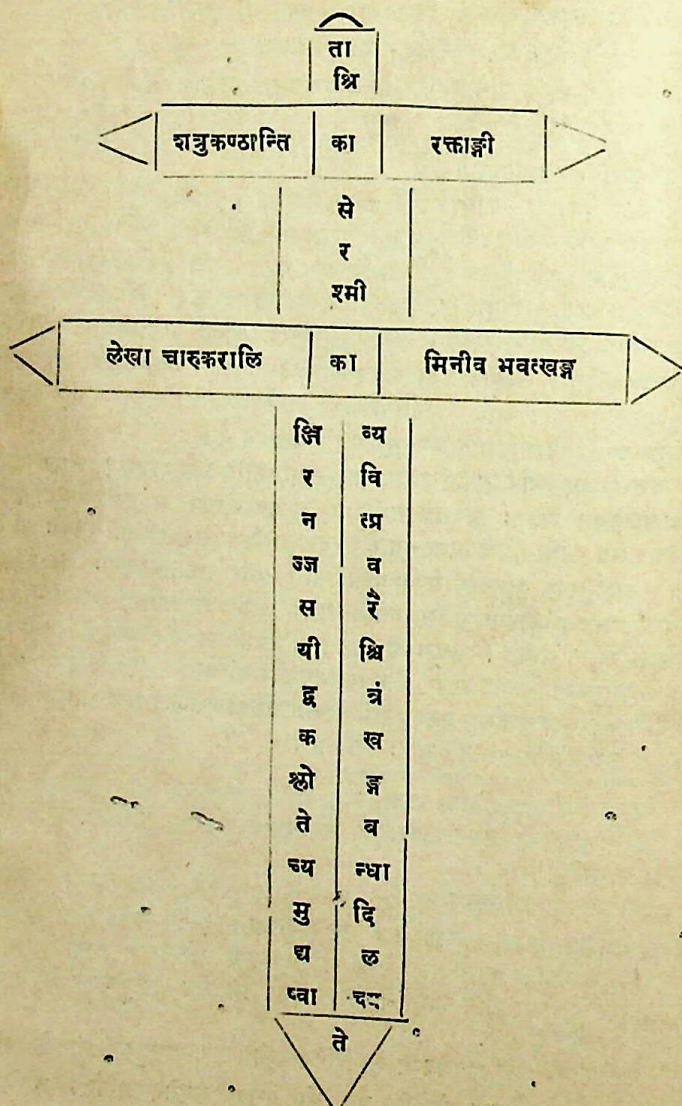 ता
श्रि
शत्रुकण्ठान्ति का रक्ताङ्गी
से
र
श्मी
लेखा चारुकरालि का मिनीव भवत्खड्ग
क्षि व्य
र वि
न त्प्र
ज्ज व
स रै
यी श्चि
द्व त्रं
क ख
श्लो ड्ग
ते ब
च्य न्धा
मु दि
द्य ल
ष्वा
ते